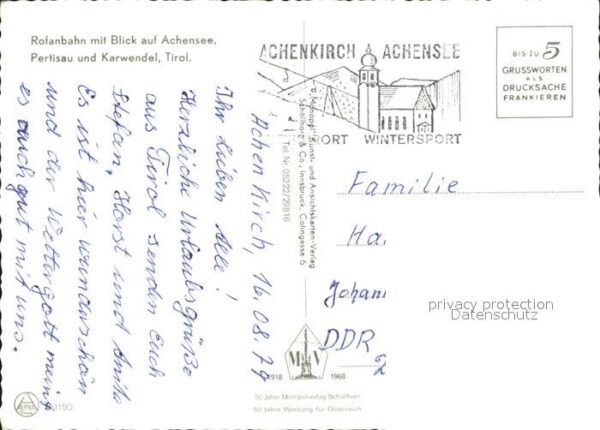 Rofanbahn mit Blick auf Achensee,
Pertisau und Karwendel, Tirol.
ACHENKIRCH A ACHENSEE
ORT WINTERSPORT
BIS ZU 5
GRUSSWORTEN
ALS
DRUCKSACHE
FRANKIEREN
Achenkirch, 16.08.79
Ihr lieben Alle!
Herzliche Urlaubsgrüße
aus Tirol senden Euch
Stefan, Horst und Anita
Es ist hier wunderschön
und der Wettergott meint
es auch gut mit uns.
"Monopol" Kunst- und Ansichtskarten-Verlag
Schöllhorn & Co., Innsbruck, Colingasse 6
Tel. Nr. 05222/29816
Familie
Ha.
Johann
DDR
2
privacy protection
Datenschutz
M V
1918 1968
50 Jahre Monopolverlag Schöllhorn
50 Jahre Werbung für Österreich
1150